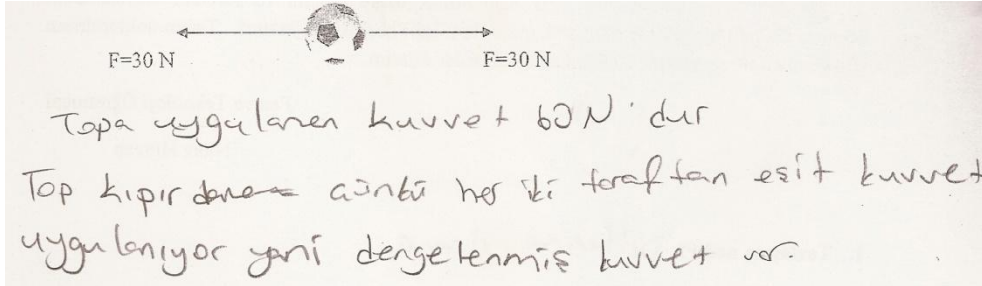 F=30 N F=30 N
Topa uygulanan kuvvet 60N'dur
Top kıpırdanamaz çünkü her iki taraftan eşit kuvvet
uygulanıyor yani dengelenmiş kuvvet var.